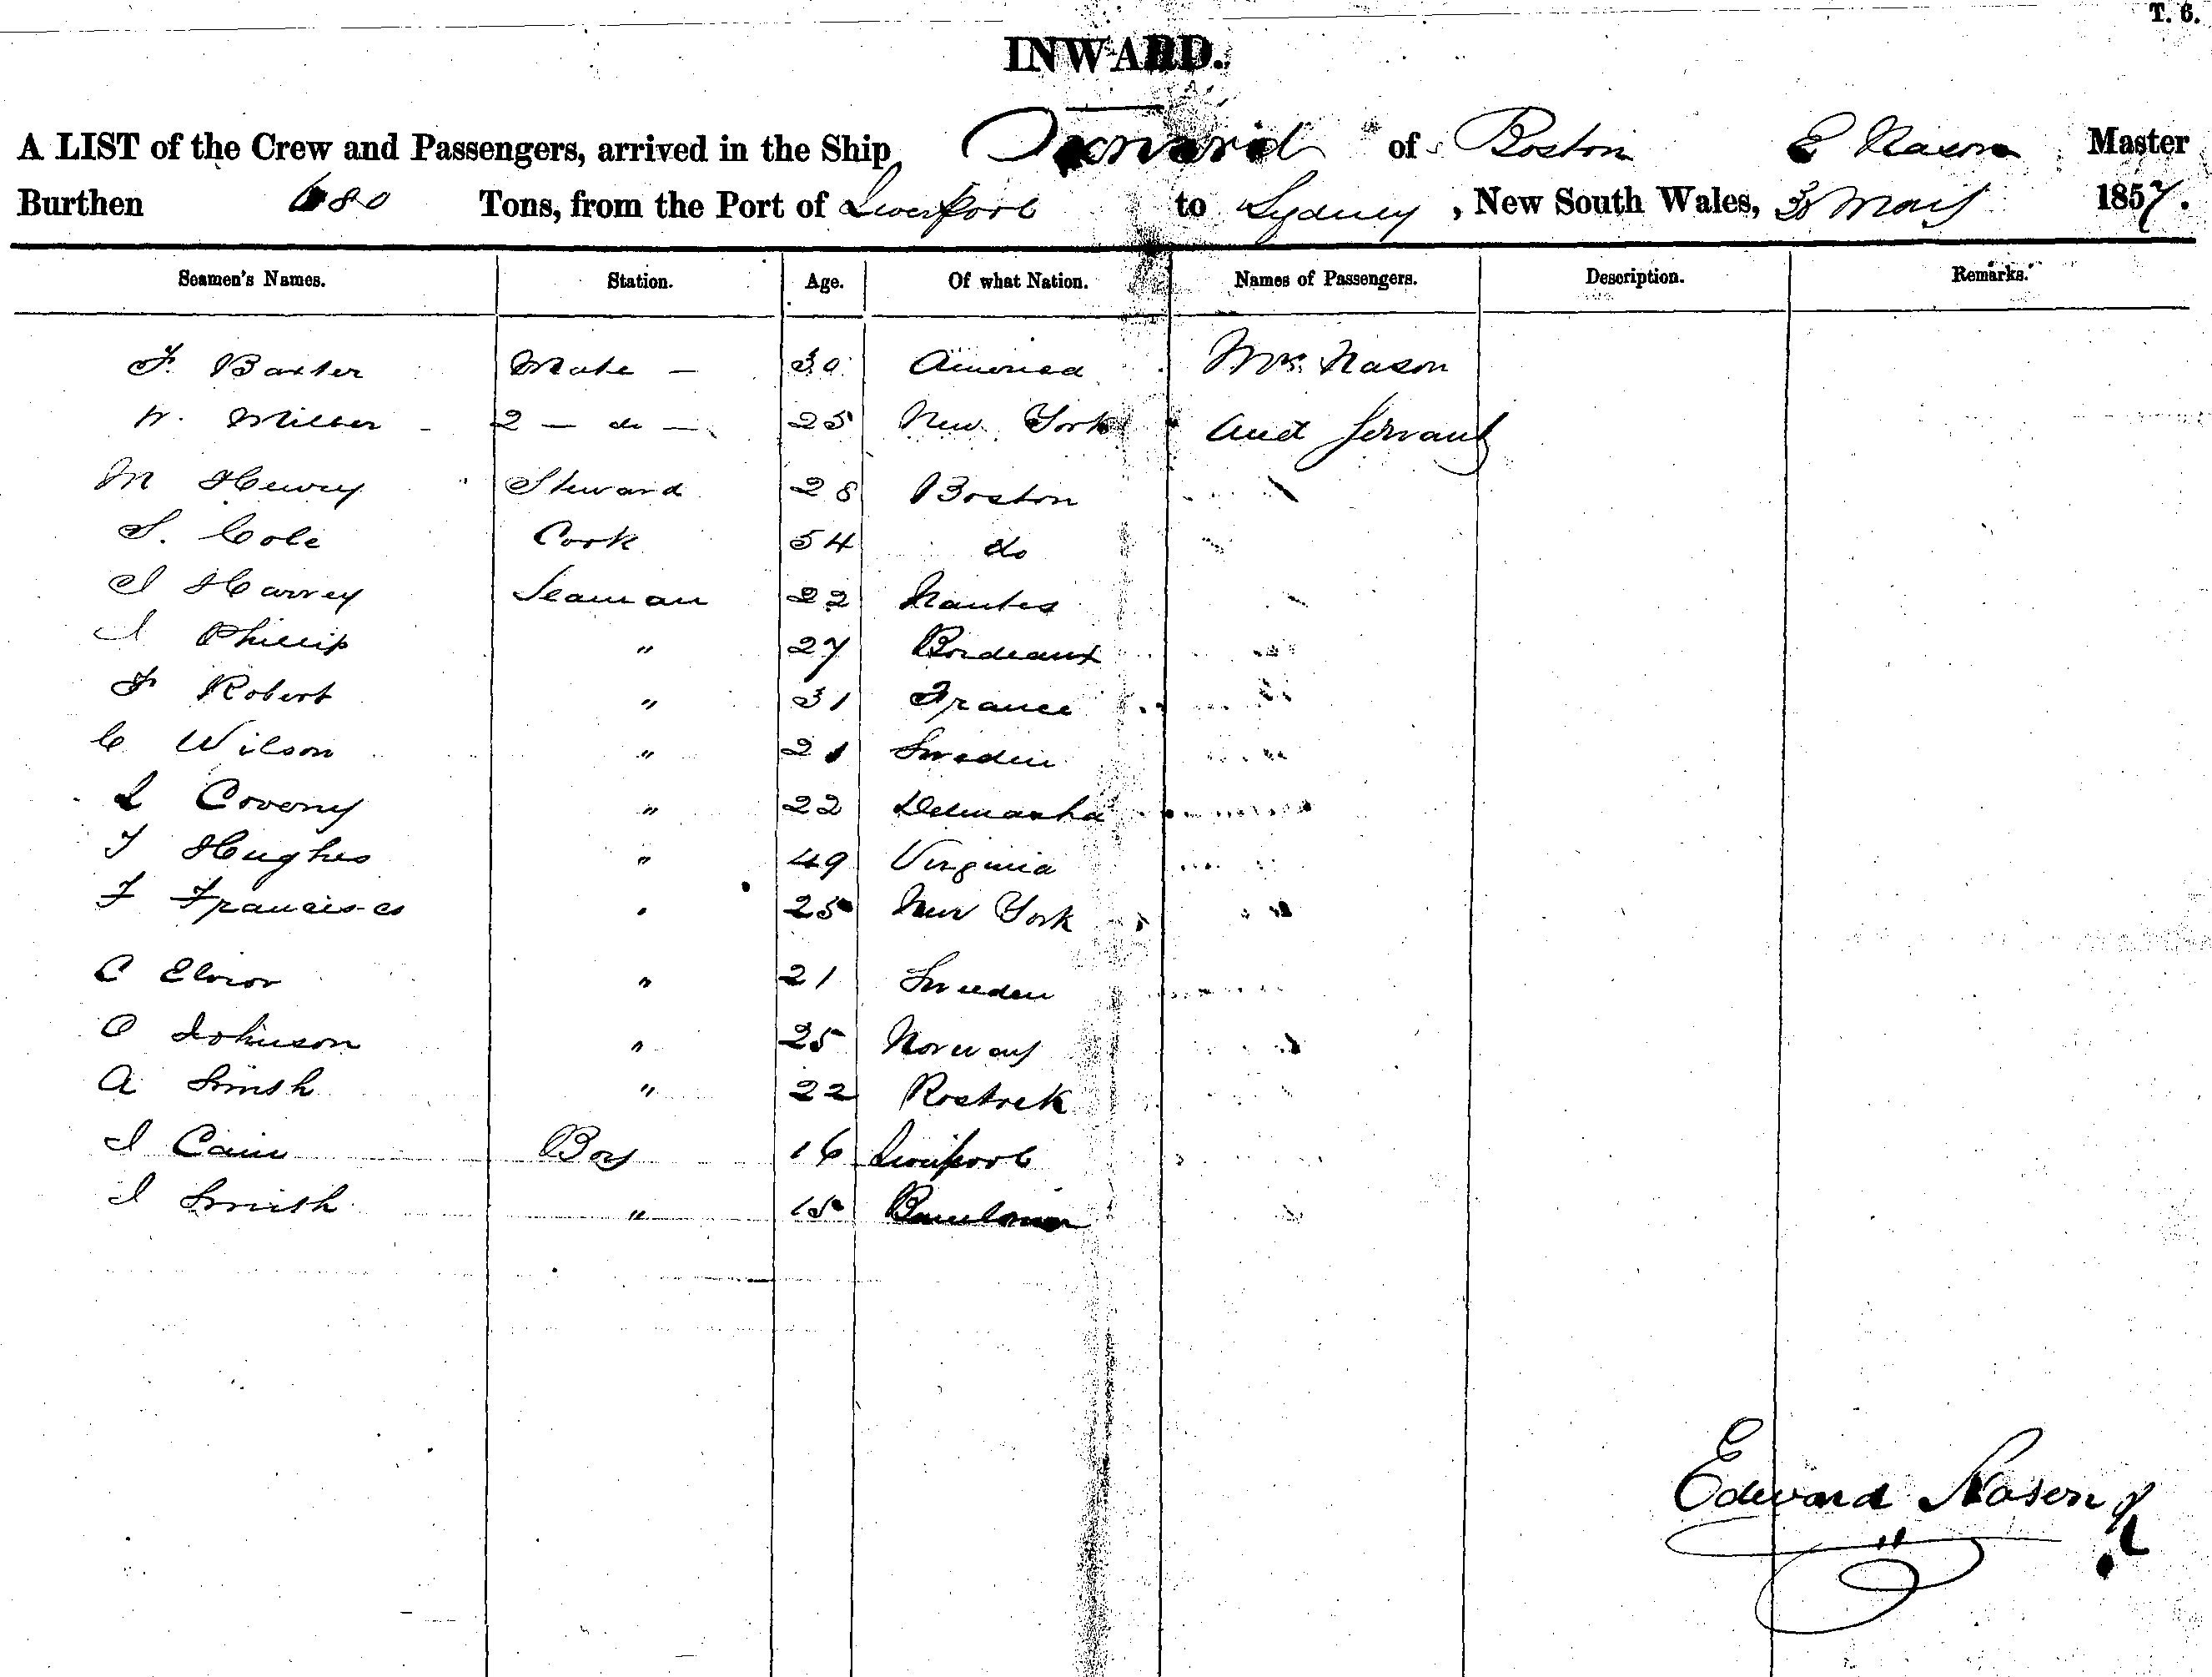 T. 6.
INWARD.
A LIST of the Crew and Passengers, arrived in the Ship of Boston E Nason Master
Burthen 680 Tons, from the Port of Liverpool to Sydney, New South Wales, May 1857.
Seamen's Names. Station. Age. Of what Nation. Names of Passengers. Description. Remarks.
F. Baxter Mate — 30 America Mrs. Nason
W. Miller 2 — do — 25 New York and Servant
M Henry Steward 28 Boston
S. Cole Cook 54 do
J Harvey Seaman 22 Nantes
J Phillip " 27 Bordeaux
F Robert " 31 France
C Wilson " 21 Sweden
L Coveny " 22
T Hughes " 49 Virginia
F 25 New York
C " 21 Sweden
O Johnson " 25 Norway
A Smith " 22
J Cain Boy 16 Liverpool
J Smith " 15
Edward Nason